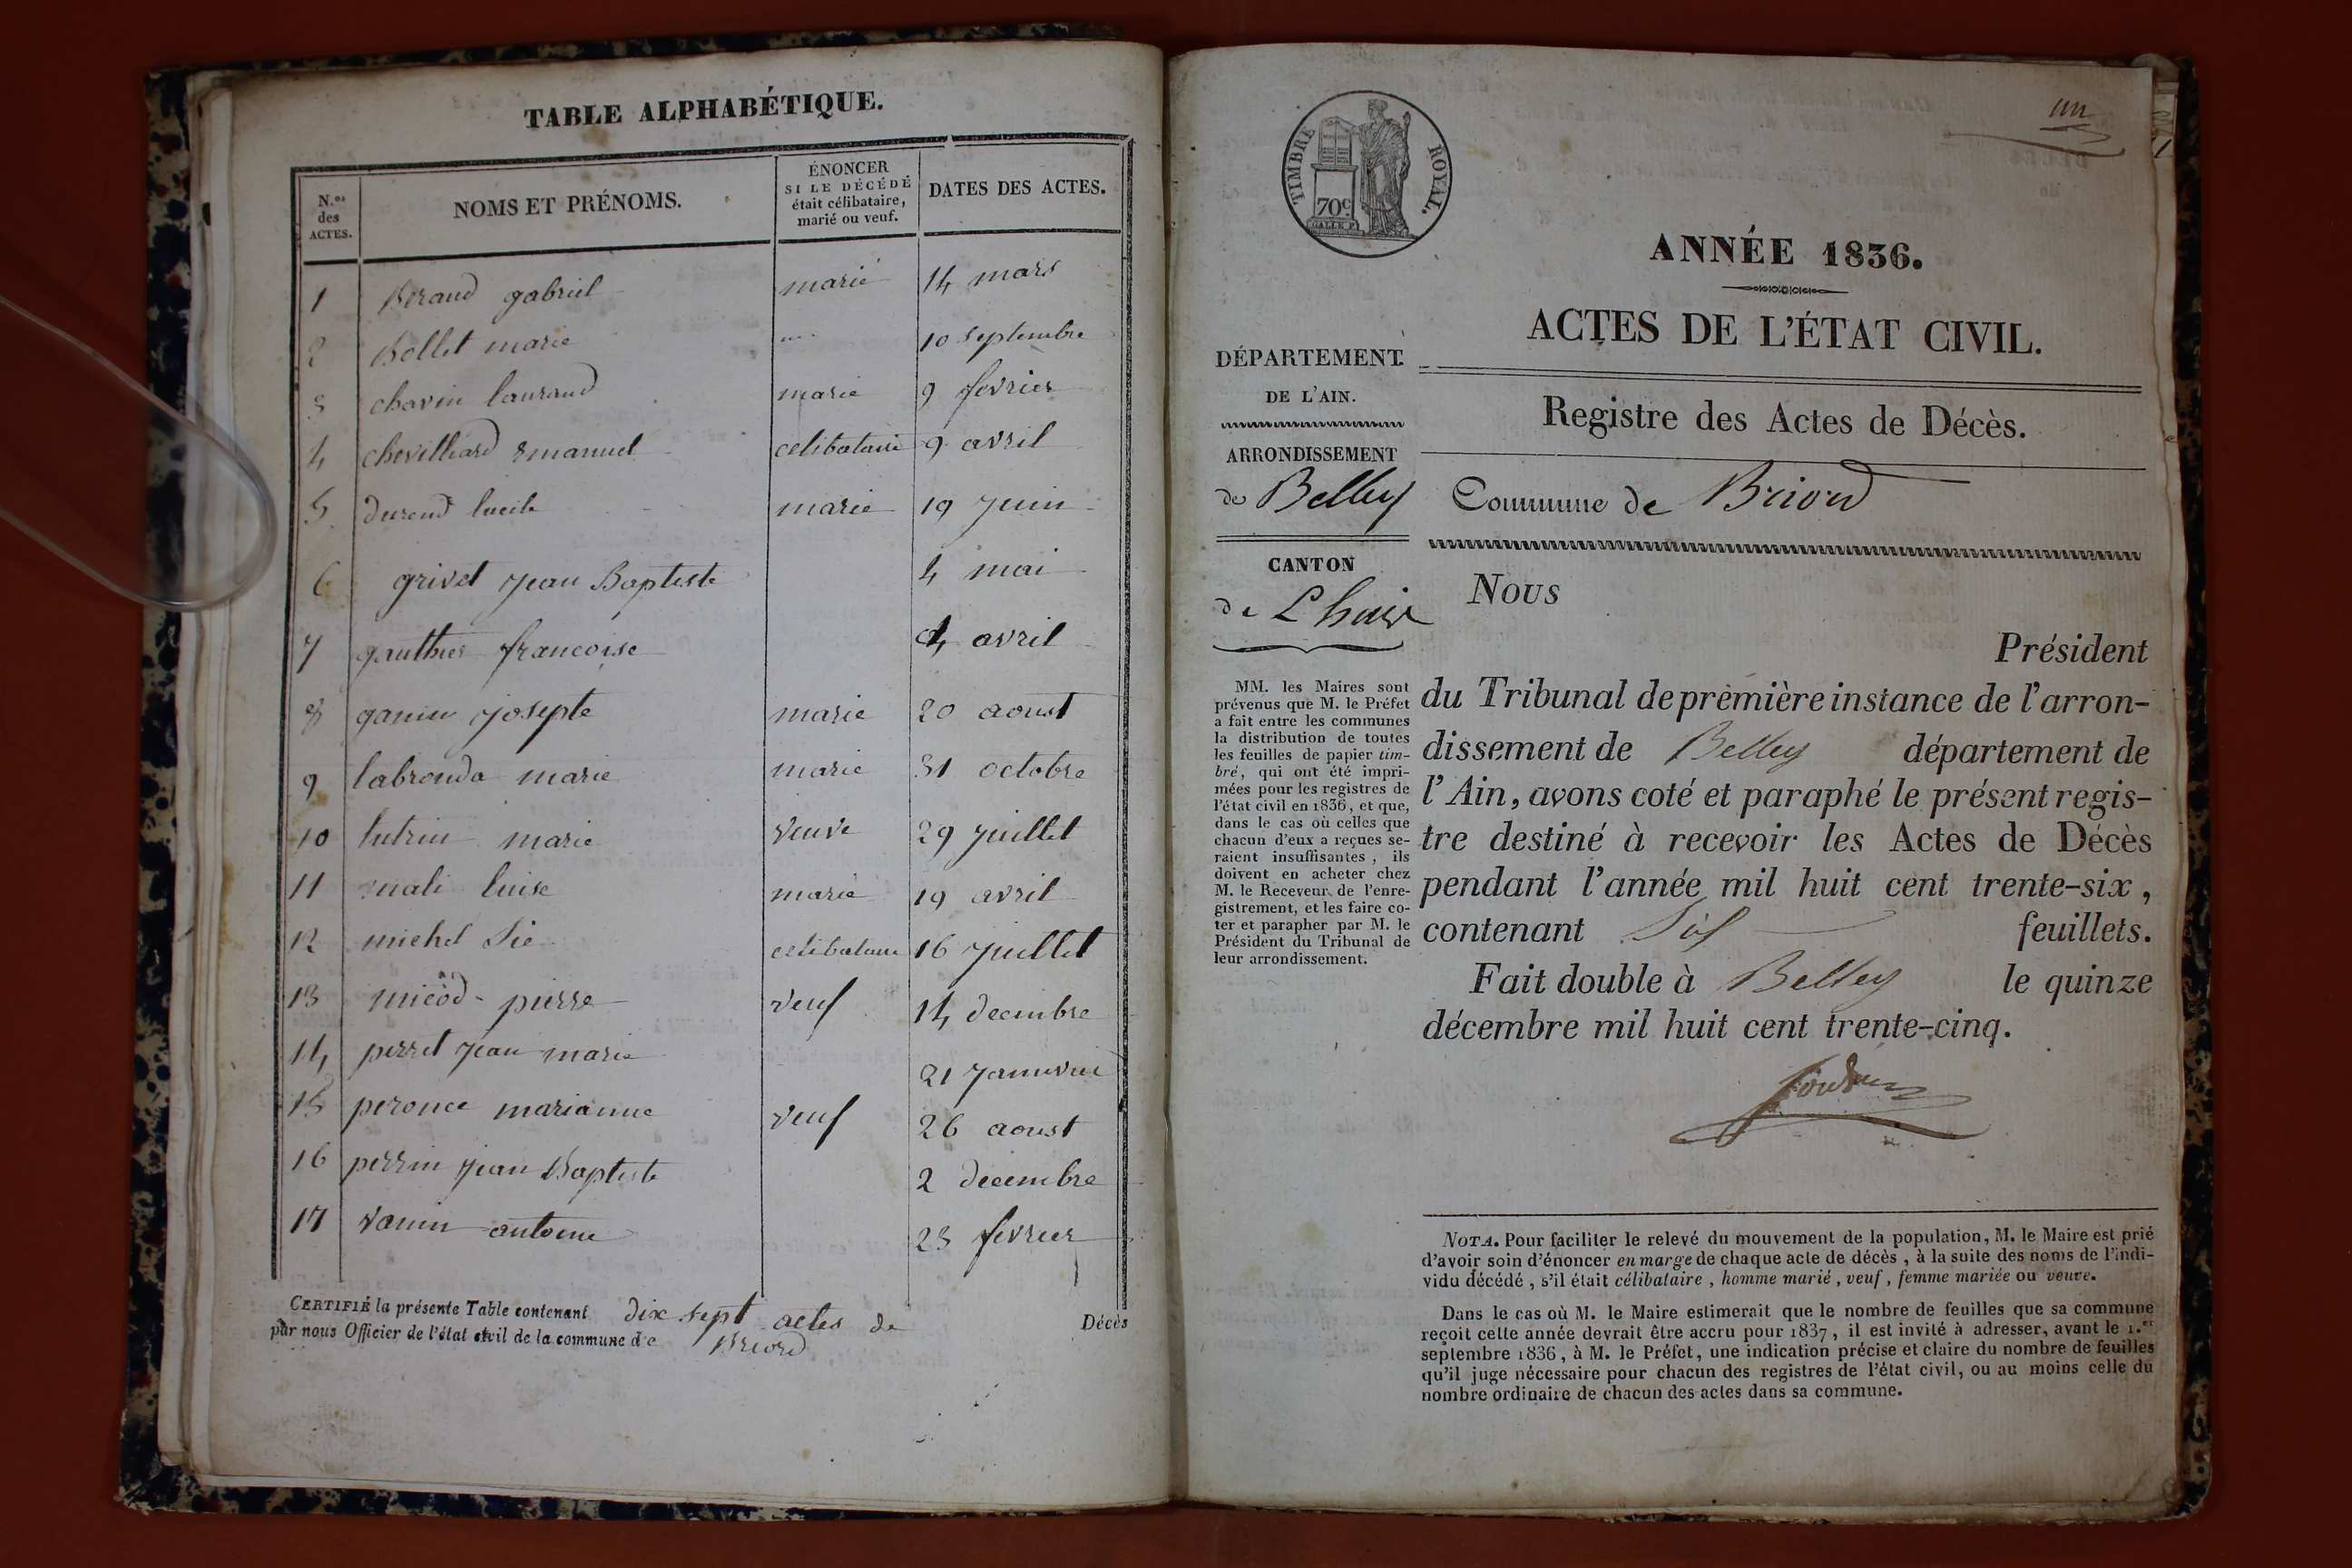 TABLE ALPHABÉTIQUE.
N.os des ACTES.
NOMS ET PRÉNOMS.
ÉNONCER SI LE DÉCÉDÉ était célibataire, marié ou veuf.
DATES DES ACTES.
1 Beraud gabriel marié 14 mars
2 Bollet marie 10 septembre
3 chavin lauraud marie 9 fevrier
4 chevilliard emanuel celibataire 9 avril
5 durend lucile marie 19 juin
6 grivet jean Baptiste 4 mai
7 gauthier francoise 4 avril
8 ganin josepte marie 20 aoust
9 labronda marie marie 31 octobre
10 lutrin marie veuve 29 juillet
11 mali luise marié 19 avril
12 michel celibataire 16 juillet
13 micôd pierre veuf 14 decembre
14 perret jean marie 21 janvrie
15 peronce marianne veuf 26 aoust
16 perrin jean Baptiste 2 decembre
17 vanin antoine 23 fevrier
CERTIFIÉ la présente Table contenant dix sept actes de Décès
par nous Officier de l'état civil de la commune de Briord
un
TIMBRE ROYAL.
70c
ANNÉE 1836.
ACTES DE L'ÉTAT CIVIL.
DÉPARTEMENT
DE L'AIN.
ARRONDISSEMENT
de Belley
CANTON
de Lhuis
MM. les Maires sont
prévenus que M. le Préfet
a fait entre les communes
la distribution de toutes
les feuilles de papier tim-
bré, qui ont été impri-
mées pour les registres de
l'état civil en 1836, et que,
dans le cas où celles que
chacun d'eux a reçues se-
raient insuffisantes, ils
doivent en acheter chez
M. le Receveur de l'enre-
gistrement, et les faire co-
ter et parapher par M. le
Président du Tribunal de
leur arrondissement.
Registre des Actes de Décès.
Commune de Briord
NOUS
Président
du Tribunal de première instance de l'arron-
dissement de Belley département de
l'Ain, avons coté et paraphé le présent regis-
tre destiné à recevoir les Actes de Décès
pendant l'année mil huit cent trente-six,
contenant Six feuillets.
Fait double à Belley le quinze
décembre mil huit cent trente-cinq.
NOTA. Pour faciliter le relevé du mouvement de la population, M. le Maire est prié
d'avoir soin d'énoncer en marge de chaque acte de décès, à la suite des noms de l'indi-
vidu décédé, s'il était célibataire, homme marié, veuf, femme mariée ou veuve.
Dans le cas où M. le Maire estimerait que le nombre de feuilles que sa commune
reçoit cette année devrait être accru pour 1837, il est invité à adresser, avant le 1.er
septembre 1836, à M. le Préfet, une indication précise et claire du nombre de feuilles
qu'il juge nécessaire pour chacun des registres de l'état civil, ou au moins celle du
nombre ordinaire de chacun des actes dans sa commune.